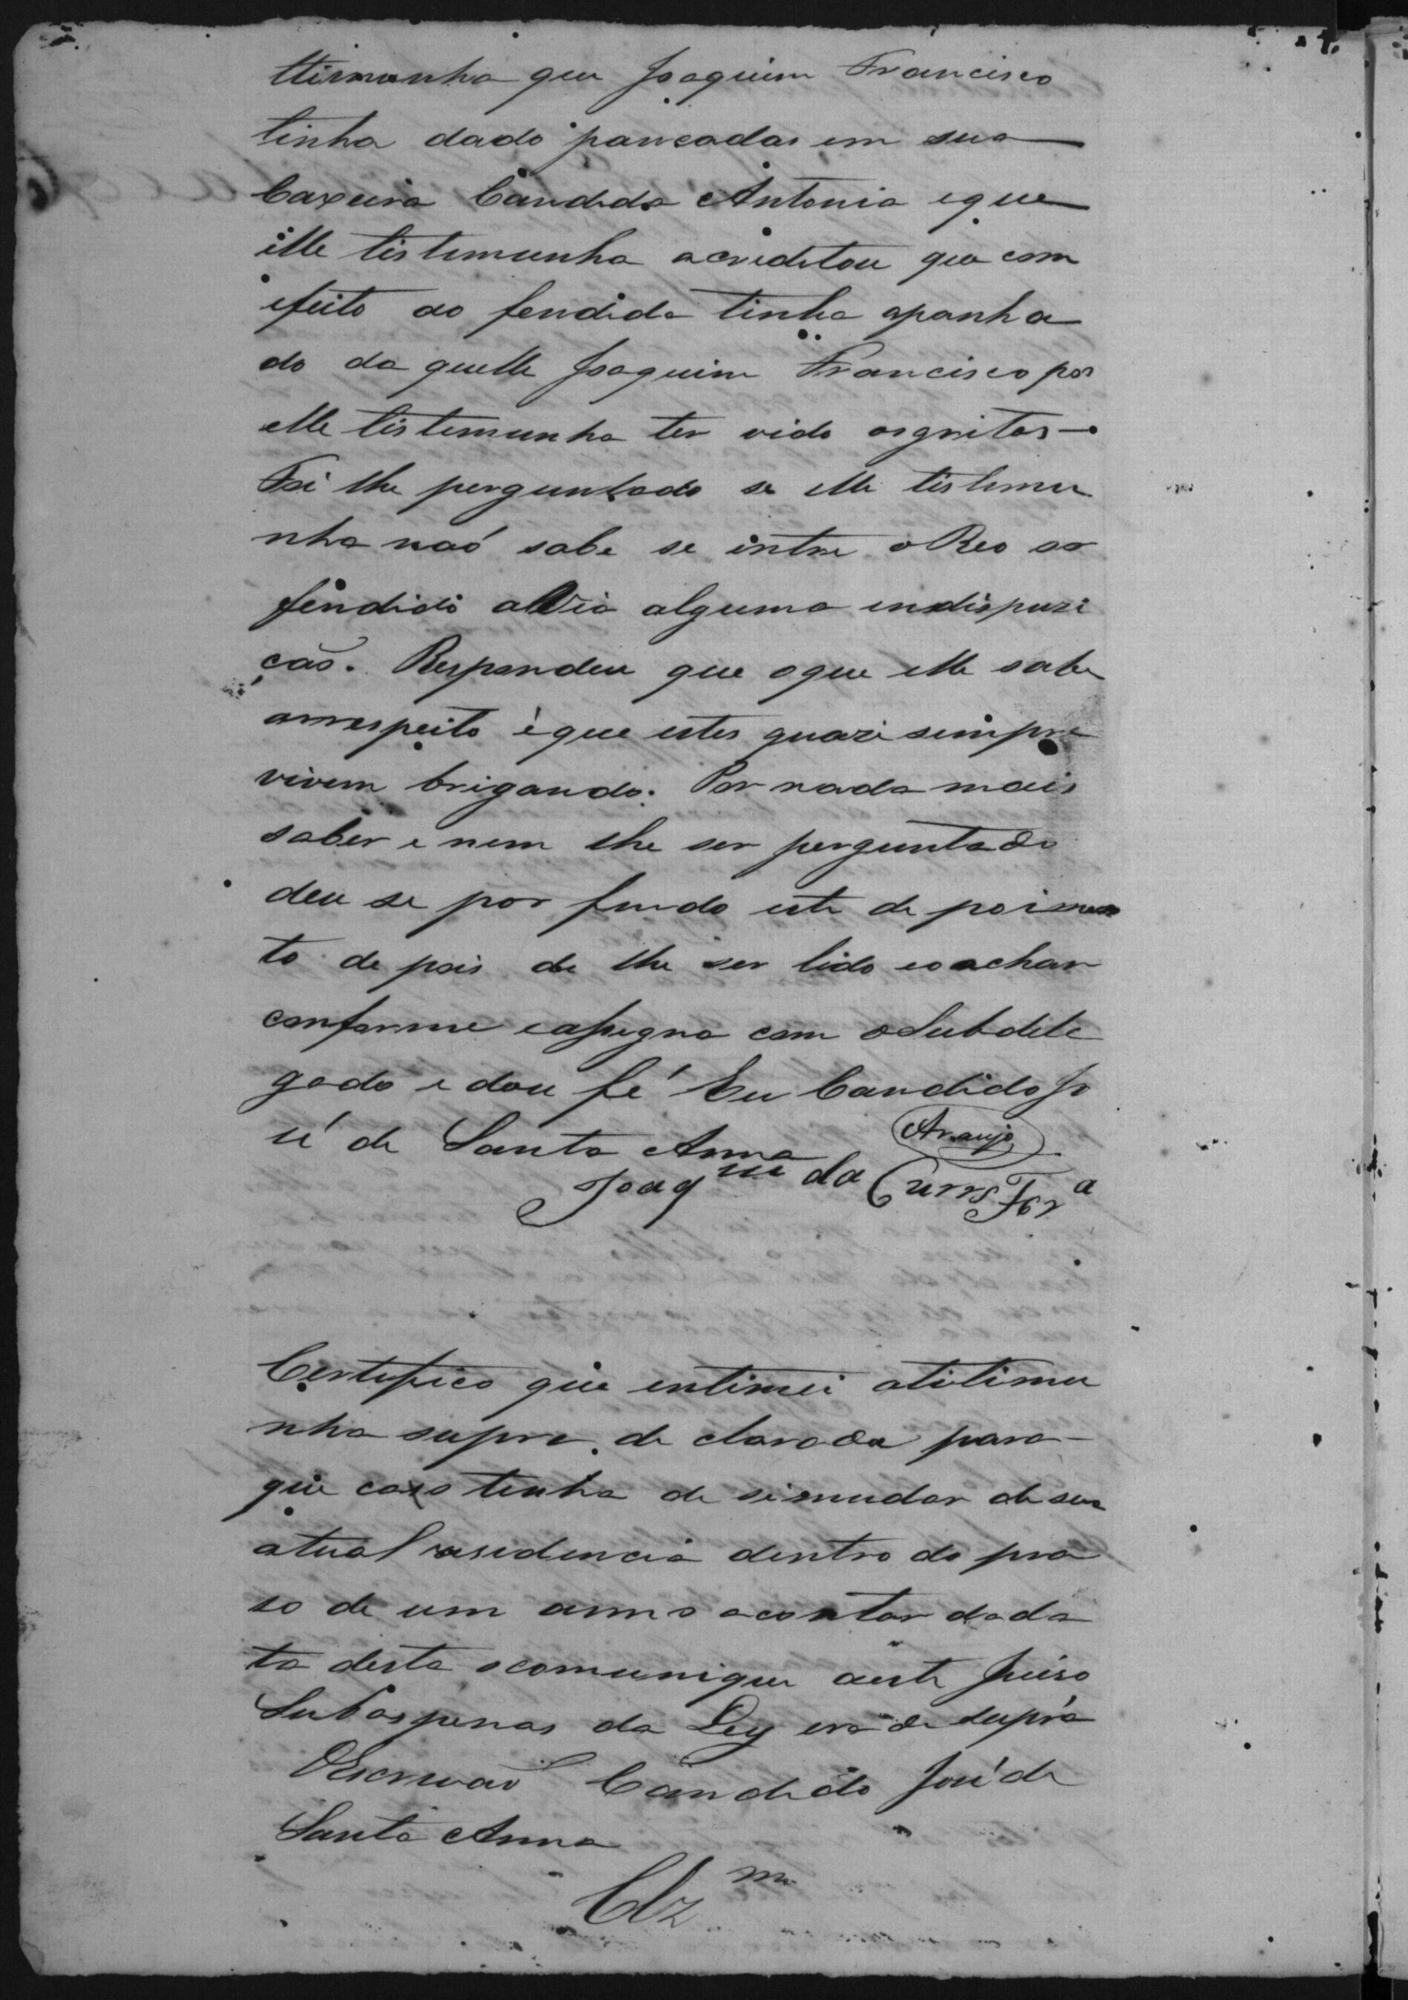 ttimunha que Joaquim Francisco
tinha dado pancadas em sua
Caxeira Candida Antonia e que
elle testemunha acreditou que com
efeito ao fendida tinha apanha
do da quelle Joaquim Francisco por
elle testemunha ter vido os gritos
Foi lhe perguntado se elle testemu
nha naó sabe se intre o Reo ao
fendido avia alguma indispuzi
ção. Respondeu que o que elle sabe
arrespeito é que estes quazi sempre
vivem brigando. Por nada mais
saber e nem lhe ser perguntado
deu se por findo este de poimen
to de pois de lhe ser lido e o achar
conforme e assigna com o Subdele
gado e dou fé Eu Candido Jo
sé de Santa Anna
Araujo
Joaqm da Ferra
Certifico que intimei a titimu
nha supra de clarada para
que caso tenha de si mudar de sua
atual residencia dentro do pra
so de um anno a contar da da
ta desta o comunique a este Juiso
Sub as penas da Ley era de supra
O Escrivaõ Candido José de
Santa Anna
Clz m